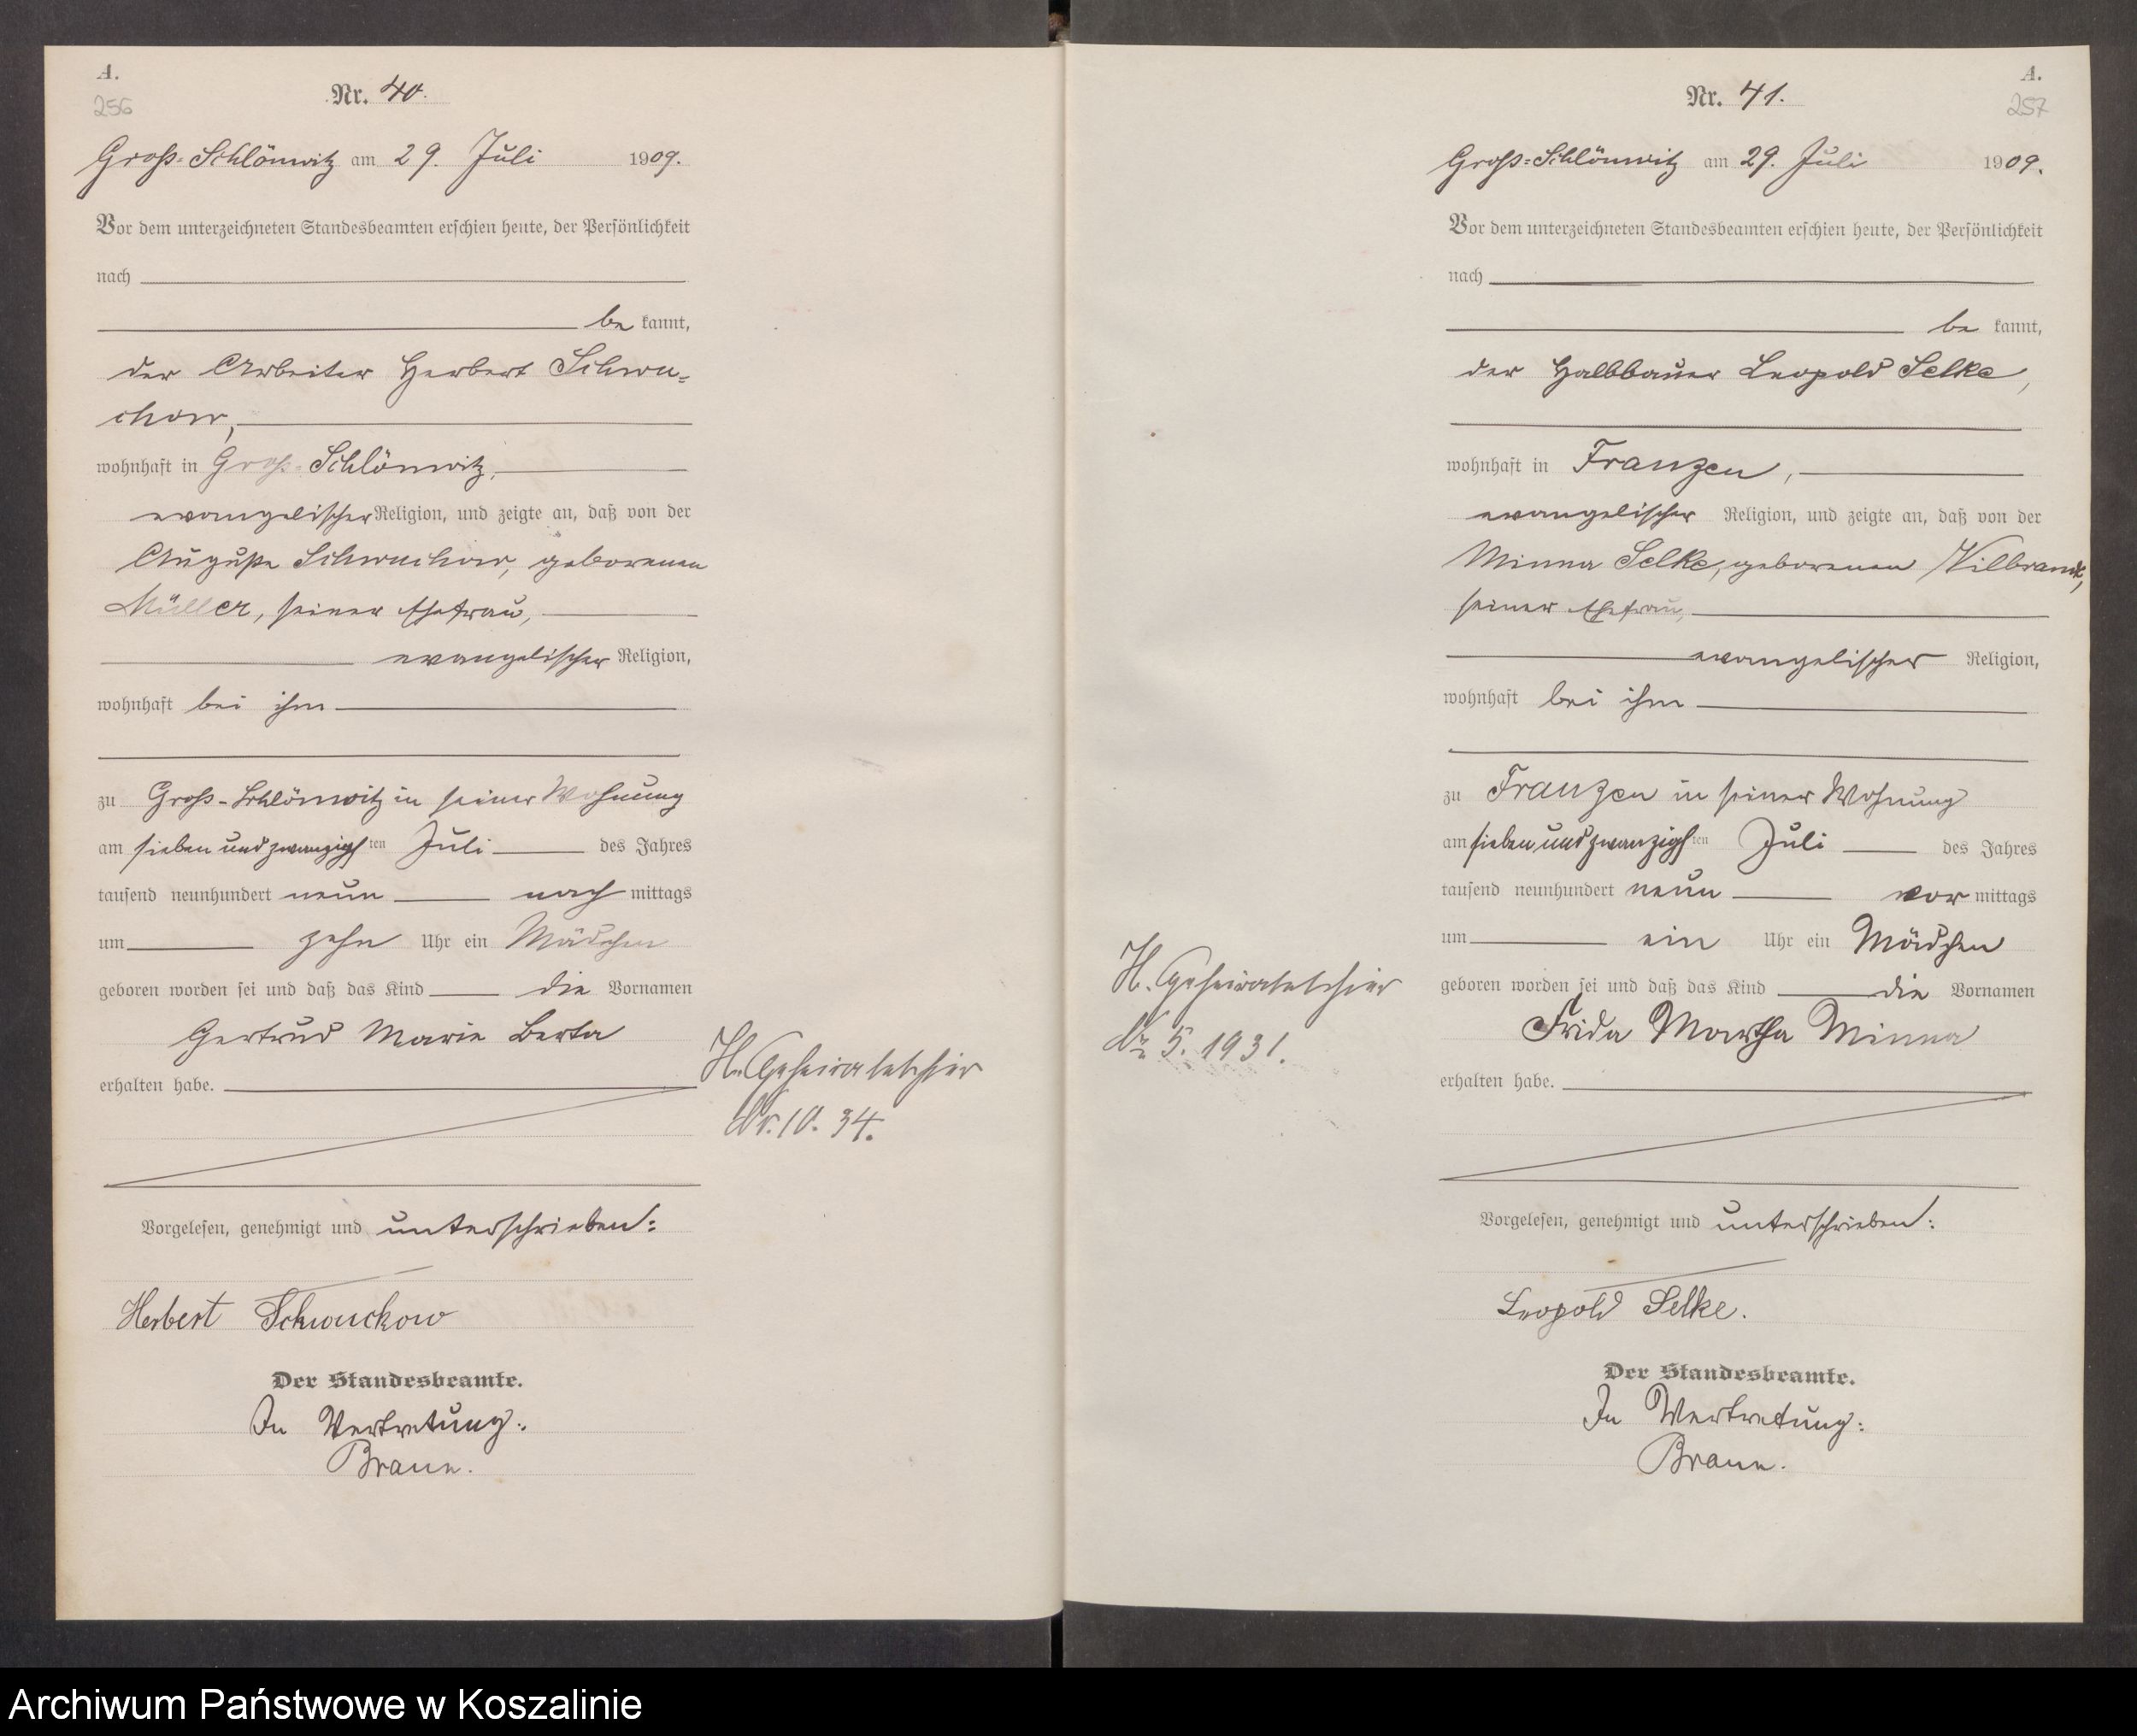 A.
256
Nr. 40.
Groß-Schlönwitz am 29. Juli 1909.
Vor dem unterzeichneten Standesbeamten erschien heute, der Persönlichkeit
nach
be kannt,
der Arbeiter Herbert Schwu-
chow,
wohnhaft in Groß-Schlönwitz,
evangelischer Religion, und zeigte an, daß von der
Auguste Schwuchow, geborenen
Müller, seiner Ehefrau,
evangelischer Religion,
wohnhaft bei ihm
zu Groß-Schlönwitz in seiner Wohnung
am sieben und zwanzigsten Juli des Jahres
tausend neunhundert neun nach mittags
um zehn Uhr ein Mädchen
geboren worden sei und daß das Kind die Vornamen
Gertrud Marie Berta
erhalten habe.
H. Geheiratet hier
Nr. 10. 34.
Vorgelesen, genehmigt und unterschrieben:
Herbert Schwuchow
Der Standesbeamte.
In Vertretung:
Braun.
A.
257
Nr. 41.
Groß-Schlönwitz am 29. Juli 1909.
Vor dem unterzeichneten Standesbeamten erschien heute, der Persönlichkeit
nach
be kannt,
der Halbbauer Leopold Selke,
wohnhaft in Franzen,
evangelischer Religion, und zeigte an, daß von der
Minna Selke, geborenen Wilbrandt,
seiner Ehefrau,
evangelischer Religion,
wohnhaft bei ihm
zu Franzen in seiner Wohnung
am sieben und zwanzigsten Juli des Jahres
tausend neunhundert neun vor mittags
um ein Uhr ein Mädchen
geboren worden sei und daß das Kind die Vornamen
Frida Martha Minna
erhalten habe.
H. Geheiratet hier
Nr. 5. 1931.
Vorgelesen, genehmigt und unterschrieben:
Leopold Selke.
Der Standesbeamte.
In Vertretung:
Braun.
Archiwum Państwowe w Koszalinie